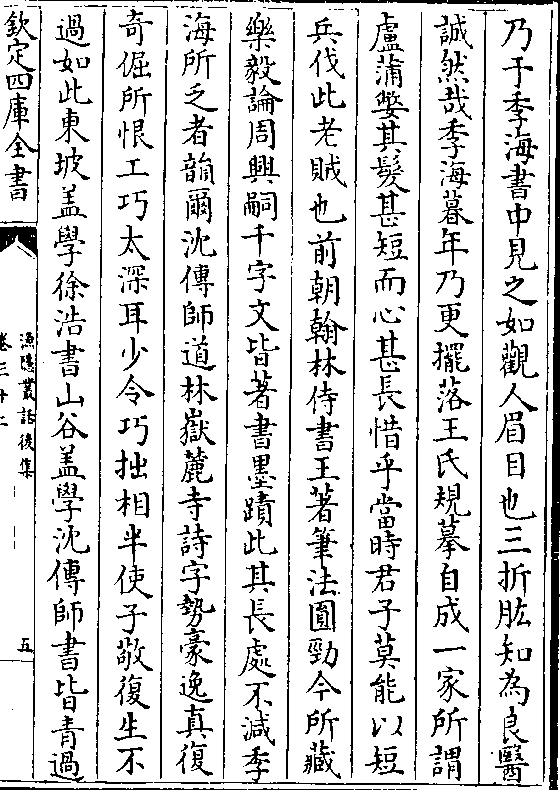 乃于季海書中見之如觀人眉目也三折肱知為良醫
誠然哉季海暮年乃更擺落王氏規摹自成一家所謂
盧蒲嫳其髮甚短而心甚長惜乎當時君子莫能以短
兵伐此老賊也前朝翰林侍書王著筆法圓勁今所藏
樂毅論周興嗣千字文皆著書墨蹟此其長處不減季
海所乏者韻爾沈傳師道林嶽麓寺詩字勢豪逸真復
奇倔所恨工巧太深耳少令巧拙相半使子敬復生不
過如此東坡盖學徐浩書山谷盖學沈傳師書皆青過
欽定四庫全書
漁隱叢話後集
卷三十二
五